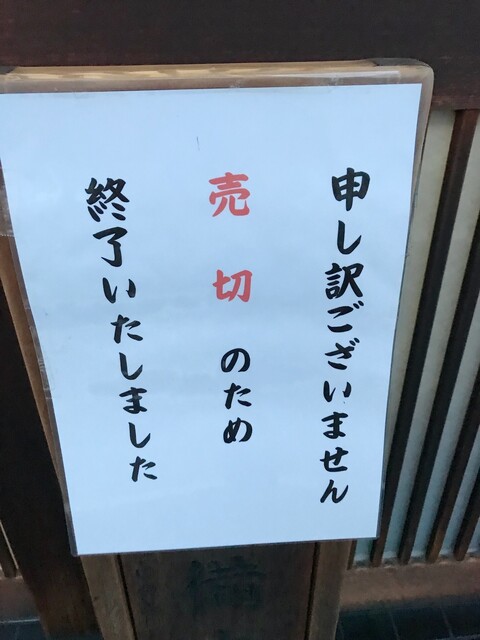 申し訳ございません
売切のため
終了いたしました